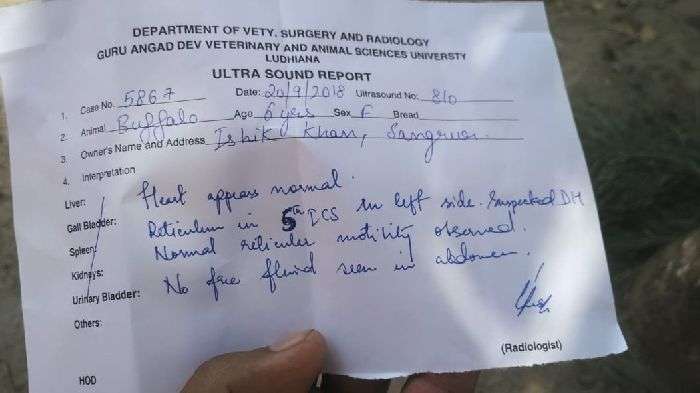 DEPARTMENT OF VETY. SURGERY AND RADIOLOGY
GURU ANGAD DEV VETERINARY AND ANIMAL SCIENCES UNIVERSTY
LUDHIANA
ULTRA SOUND REPORT
1. Case No. 5867 Date: 20/9/2018 Ultrasound No: 810
2. Animal Buffalo Age 6 yrs Sex F Bread
3. Owner's Name and Address Ishik Khan, Sangrur.
4. Interpretation
Liver: Heart appears normal.
Gall Bladder: Reticulum in 5th ICS in left side. Suspected DH
Spleen: Normal reticular motility observed.
Kidneys: No free fluid seen in abdomen.
Urinary Bladder:
Others:
(Radiologist)
HOD